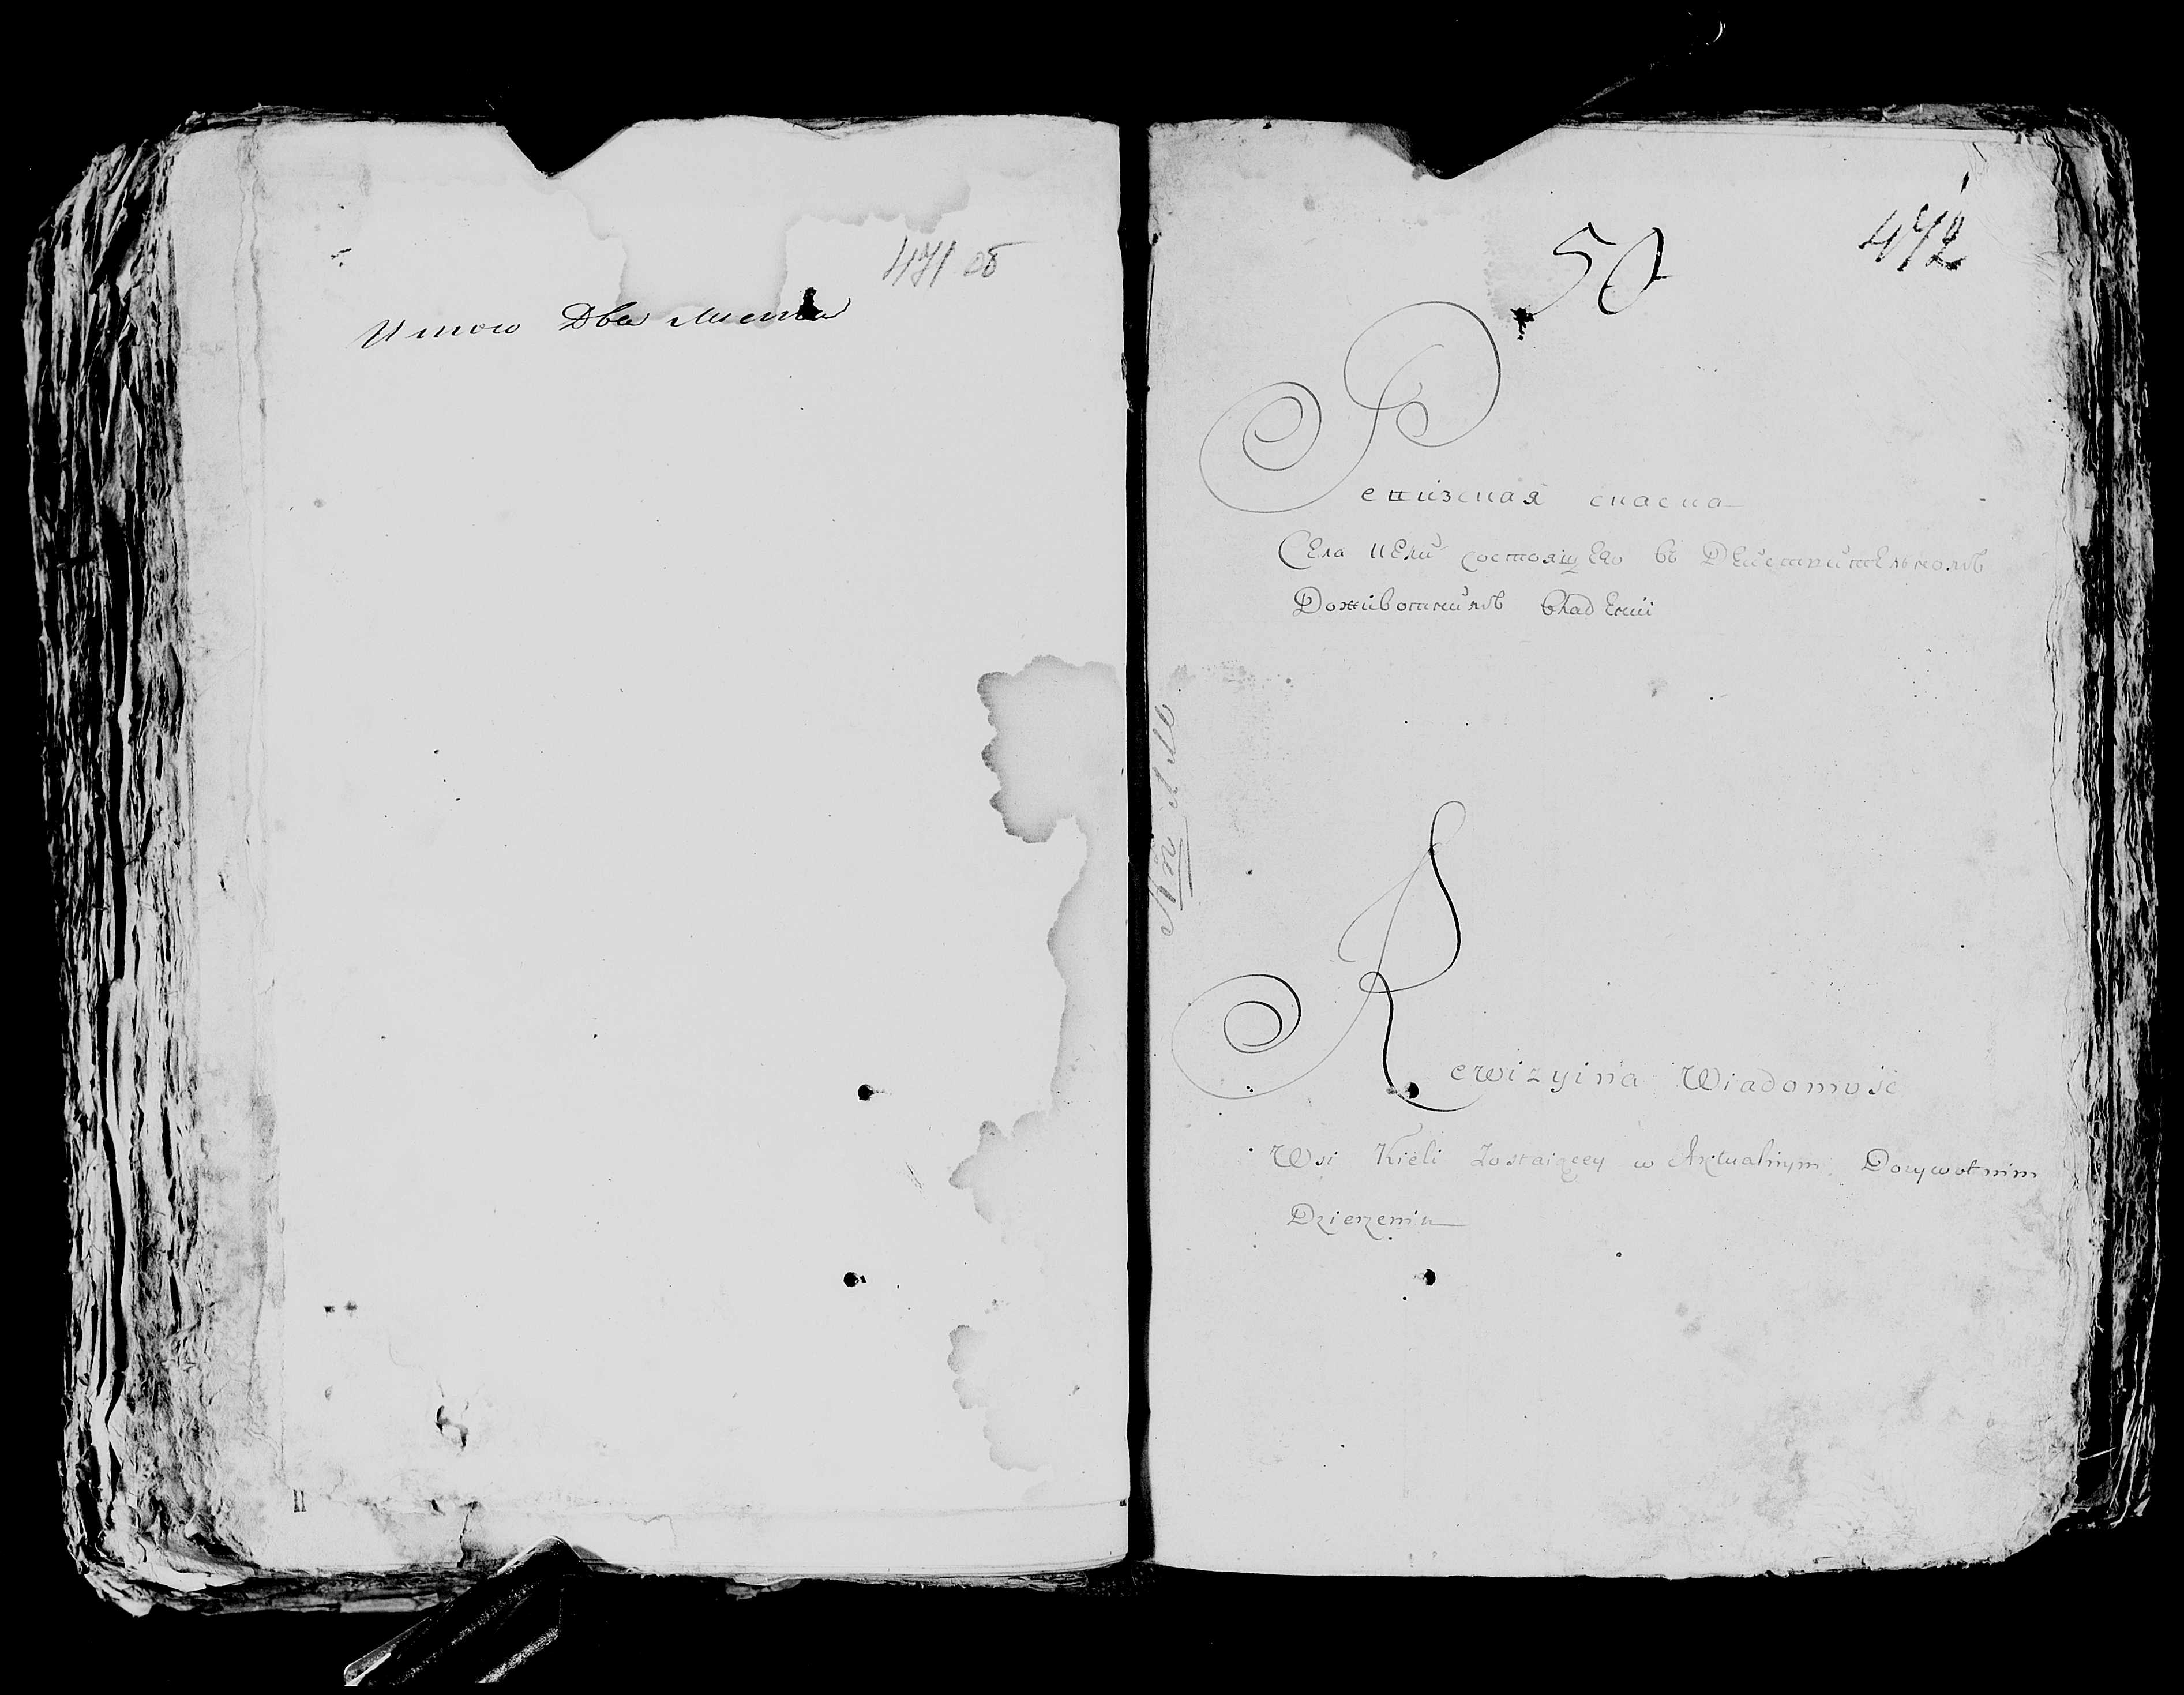 471 об
Итого Два листа
50
472
Ревизская скаска
Села Кели состоящего въ Действительномъ
Доживотнимъ владении
Rewizyina Wiadomość
Wsi Kieli Zostaiącey w Aktualnym Dożywotnim
Dzierżeniu